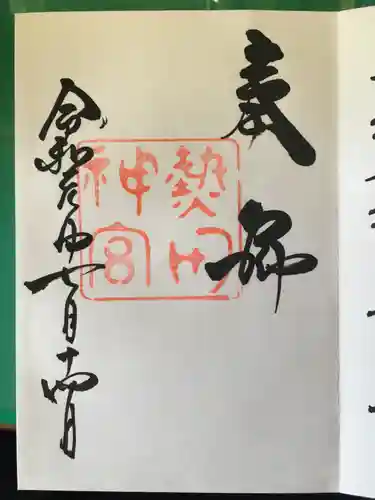 奉拝
熱田神宮
令和元年七月十四日